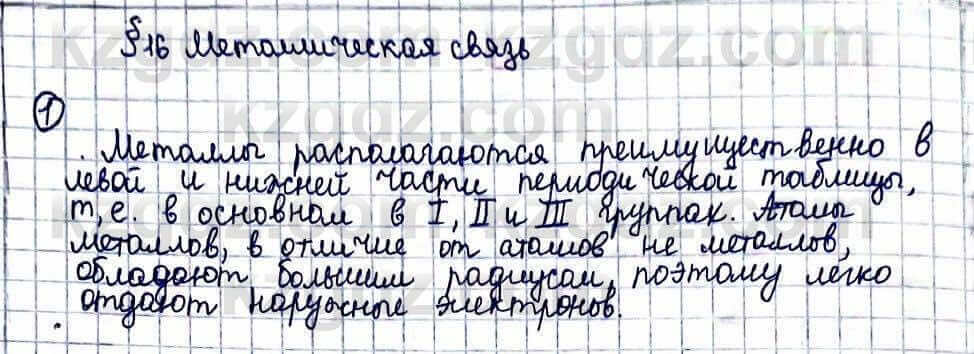 §16 Металлическая связь
1
Металлы располагаются преимущественно в
левой и нижней части периодической таблицы,
т.е. в основном в I, II и III группак. Атомы
металлов, в отличие от атомов не металлов,
обладают большим радиусом, поэтому легко
отдают наружные электронов.
kzgdz.com
kzgdz.com